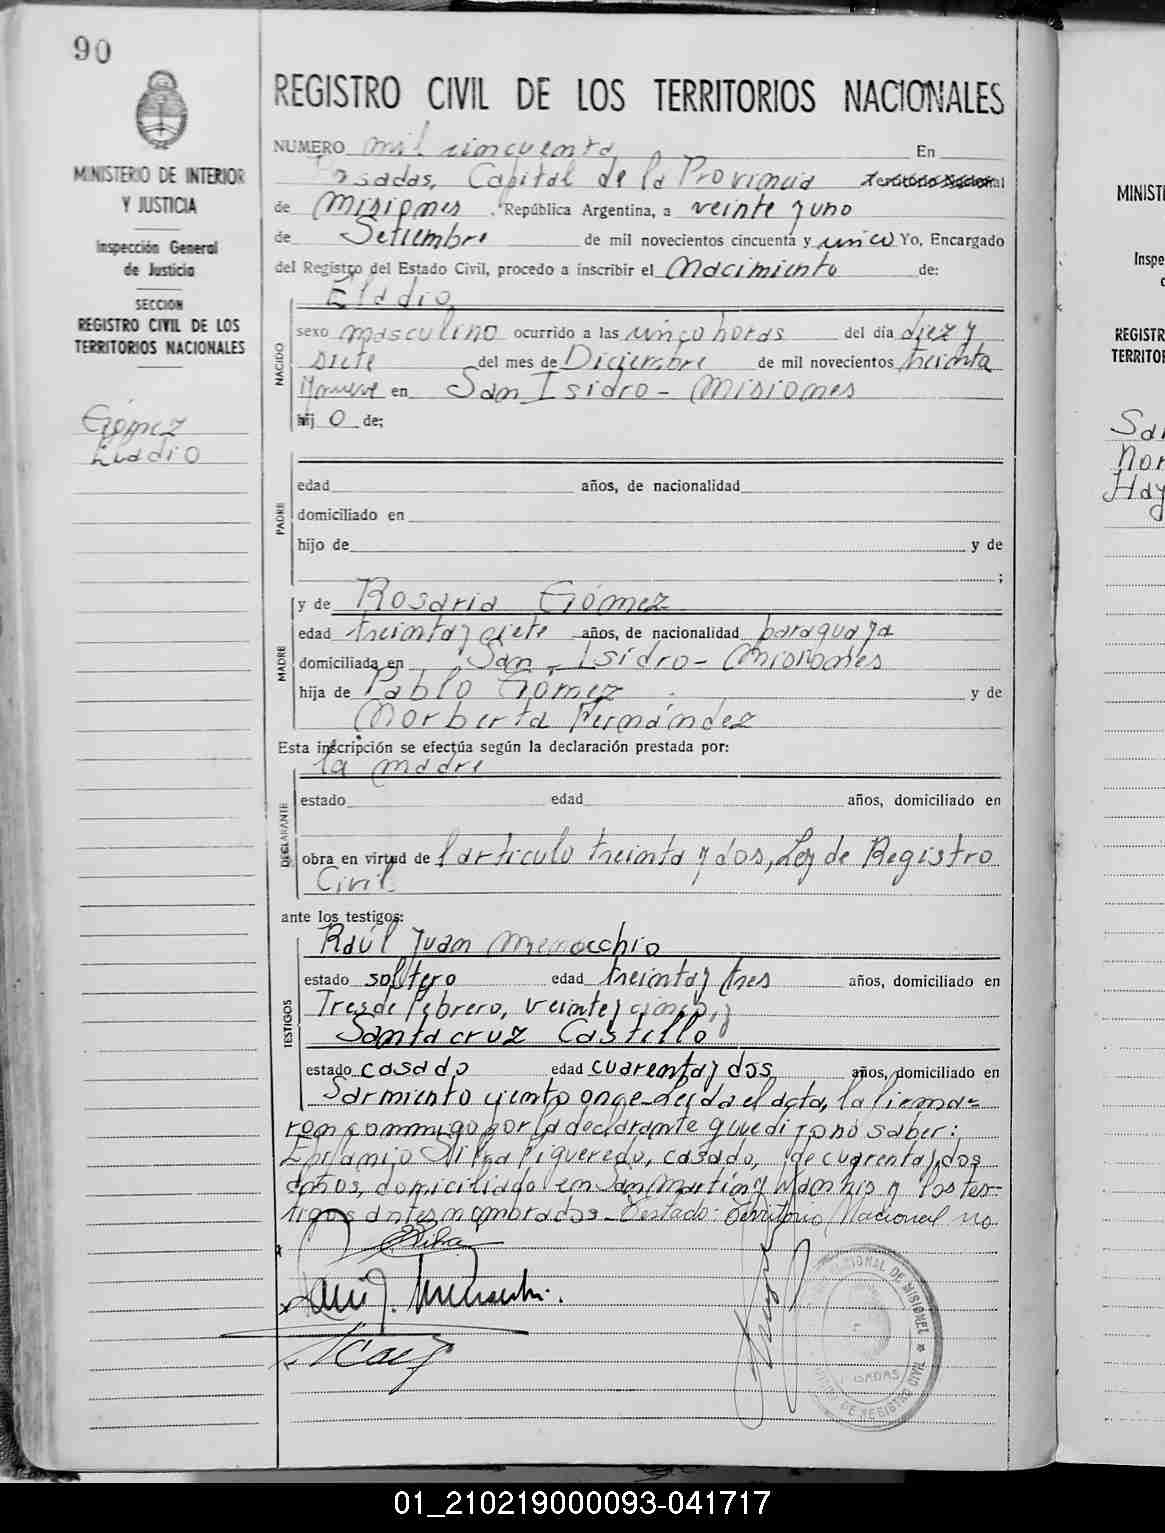 90
MINISTERIO DE INTERIOR
Y JUSTICIA
Inspección General
de Justicia
SECCION
REGISTRO CIVIL DE LOS
TERRITORIOS NACIONALES
Gómez
Eladio
REGISTRO CIVIL DE LOS TERRITORIOS NACIONALES
NUMERO mil cincuenta En
Posadas, Capital de la Provincia Territorio Nacional
de Misiones, República Argentina, a veinte y uno
de Setiembre de mil novecientos cincuenta y uno Yo, Encargado
del Registro del Estado Civil, procedo a inscribir el Nacimiento de:
NACIDO
Eladio
sexo masculino ocurrido a las cinco horas del día diez y
siete del mes de Diciembre de mil novecientos treinta
y nueve en San Isidro - Misiones
hij o de;
PADRE
edad años, de nacionalidad
domiciliado en
hijo de y de
;
MADRE
y de Rosaria Gómez
edad treinta y siete años, de nacionalidad paraguaya
domiciliada en San Isidro - Misiones
hija de Pablo Gómez y de
Norberta Fernández
Esta inscripción se efectúa según la declaración prestada por:
DECLARANTE
la madre
estado edad años, domiciliado en
obra en virtud de l artículo treinta y dos, Ley de Registro
Civil
ante los testigos:
TESTIGOS
Raúl Juan Menocchio
estado soltero edad treinta y tres años, domiciliado en
Tres de Febrero, veinte y cinco, y
Santacruz Castillo
estado casado edad cuarenta y dos años, domiciliado en
Sarmiento ciento once - Leída el acta, la firma-
ron conmigo por la declarante que dijo no saber:
Silva Figueredo, casado, de cuarenta y dos
años, domiciliado en San Martín y los tes-
tigos antes nombrados - Testado: Territorio Nacional no
DE MISIONES
POSADAS
DE REGISTRO
MINIST
Inspe
REGISTR
TERRITO
San
Nor
Hay
01_210219000093-041717